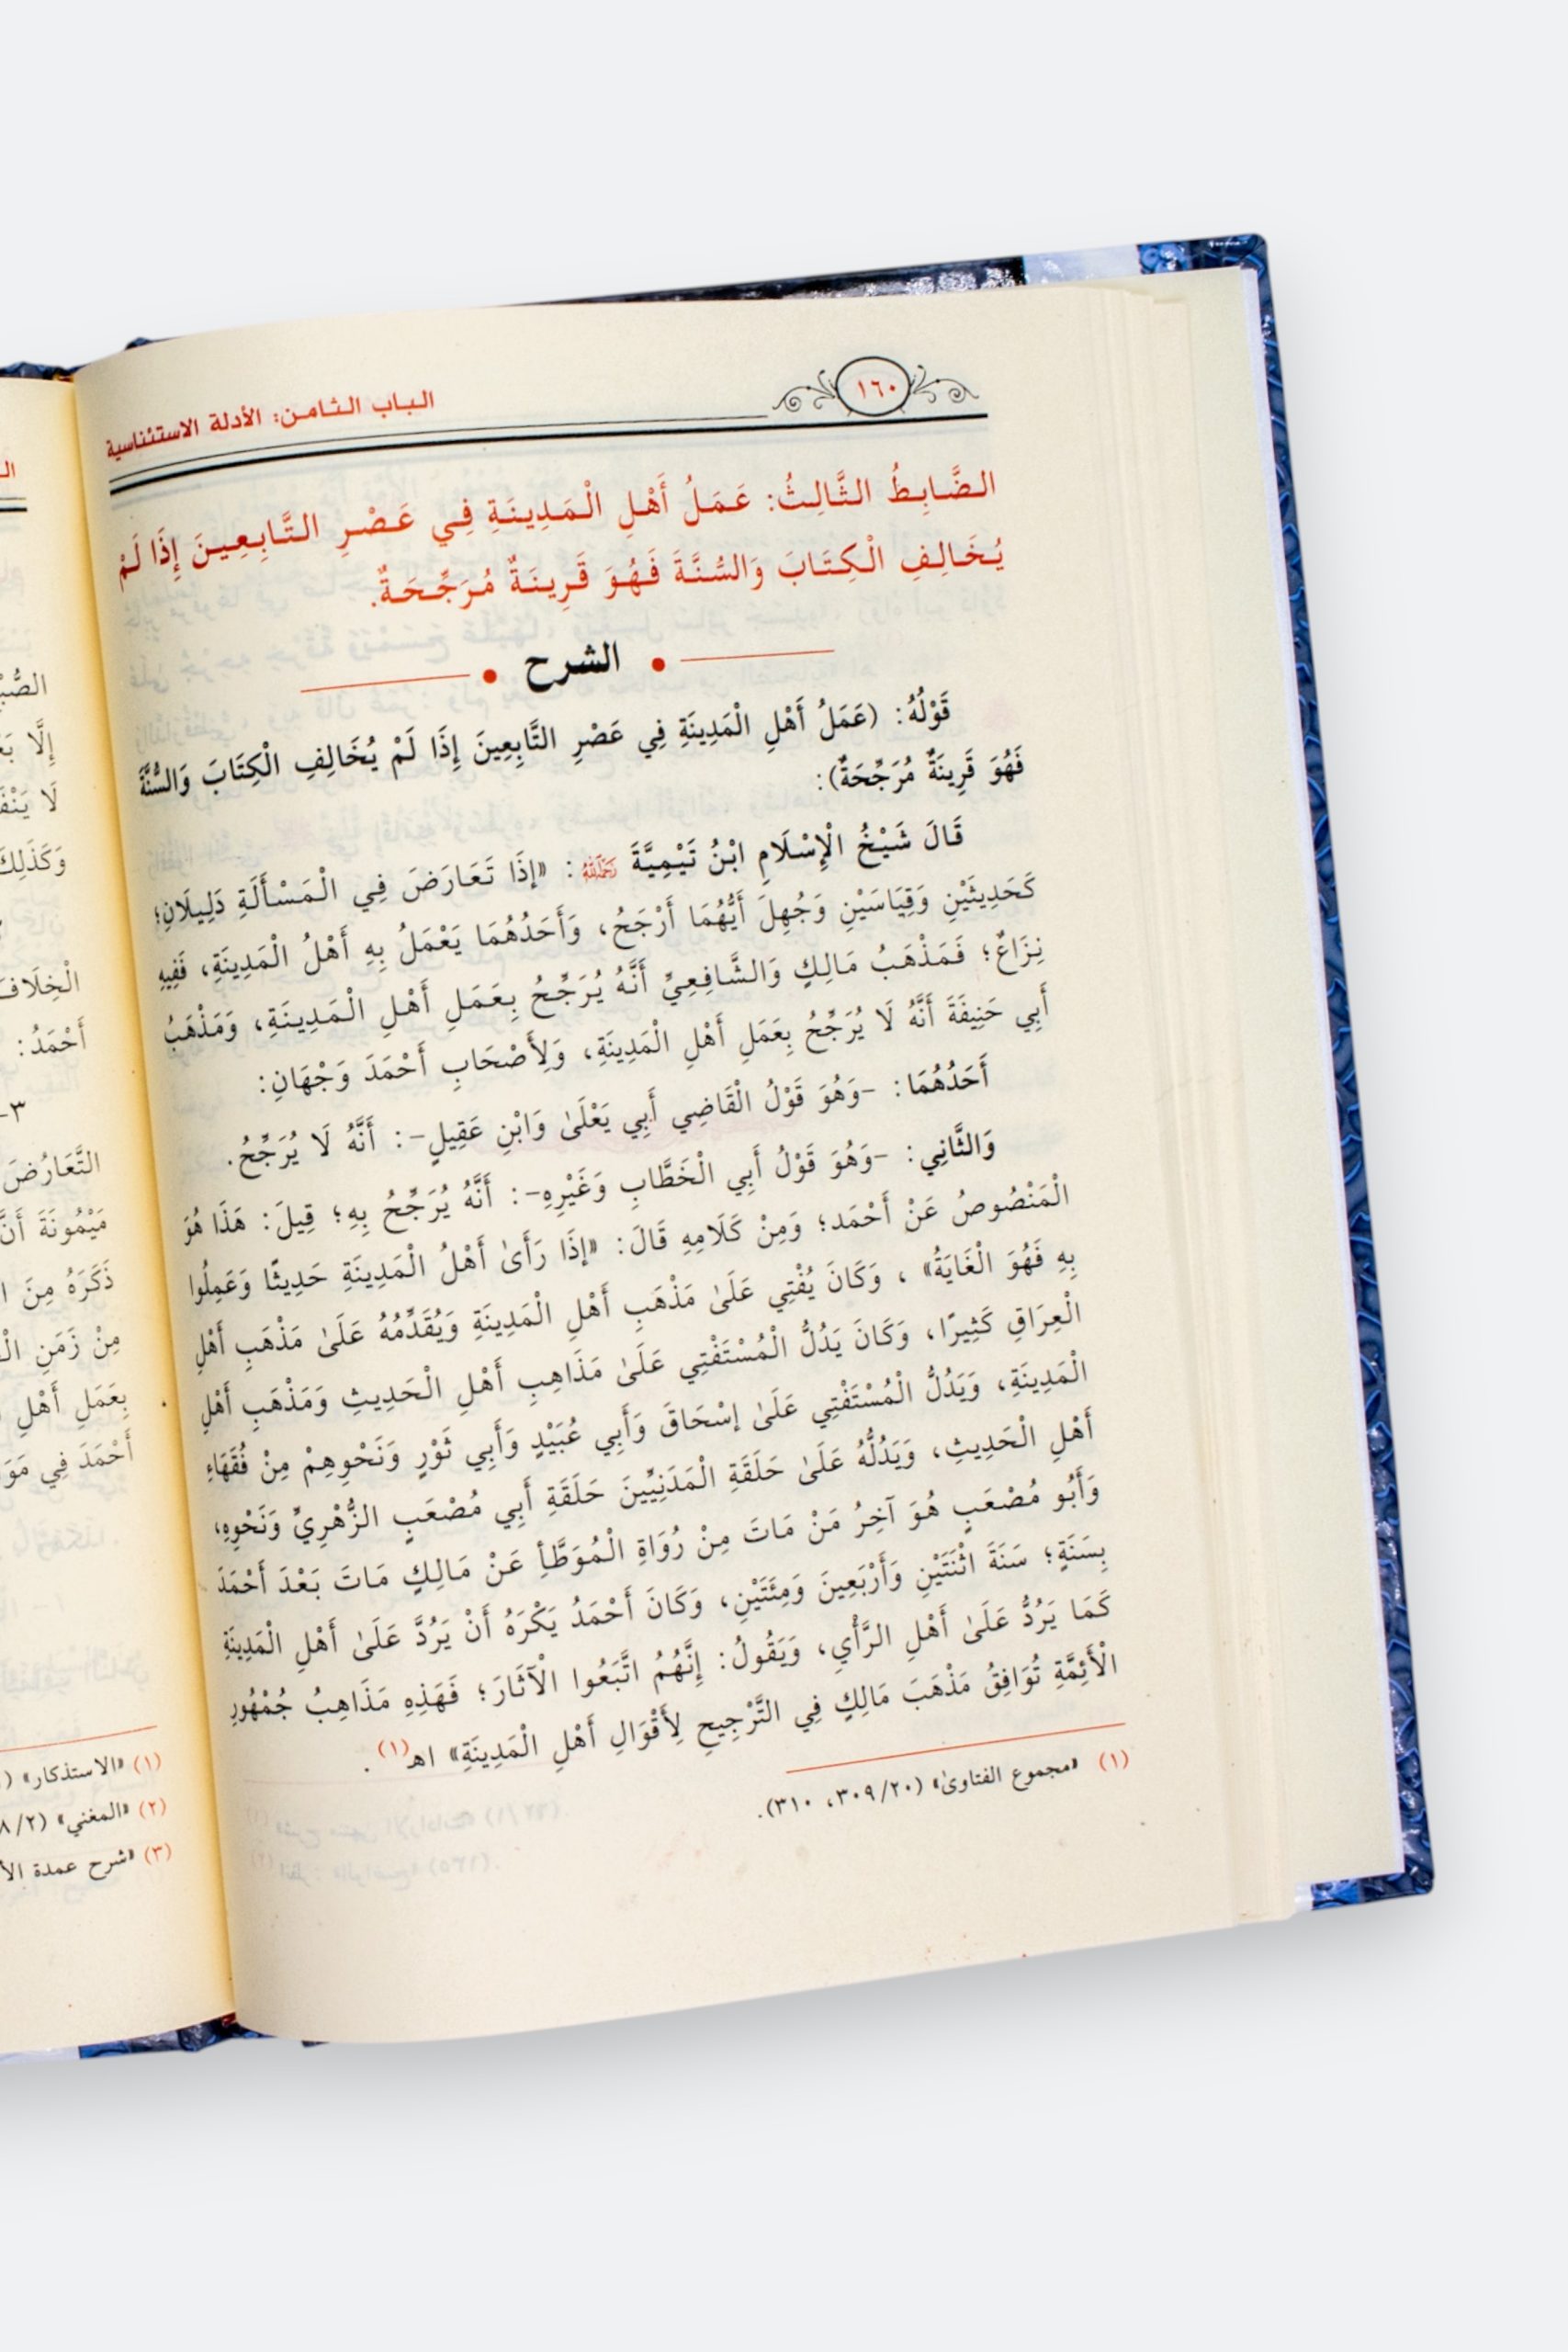 ١٦٠
الباب الثامن: الأدلة الاستئناسية
الضَّابِطُ الثَّالِثُ: عَمَلُ أَهْلِ الْمَدِينَةِ فِي عَصْرِ التَّابِعِينَ إِذَا لَمْ
يُخَالِفِ الْكِتَابَ وَالسُّنَّةَ فَهُوَ قَرِينَةٌ مُرَجِّحَةٌ.
الشرح
قَوْلُهُ: (عَمَلُ أَهْلِ الْمَدِينَةِ فِي عَصْرِ التَّابِعِينَ إِذَا لَمْ يُخَالِفِ الْكِتَابَ وَالسُّنَّةَ
فَهُوَ قَرِينَةٌ مُرَجِّحَةٌ):
قَالَ شَيْخُ الْإِسْلَامِ ابْنُ تَيْمِيَّةَ رَحِمَهُ اللَّهُ: «إِذَا تَعَارَضَ فِي الْمَسْأَلَةِ دَلِيلَانِ؛
كَحَدِيثَيْنِ وَقِيَاسَيْنِ وَجُهِلَ أَيُّهُمَا أَرْجَحُ، وَأَحَدُهُمَا يَعْمَلُ بِهِ أَهْلُ الْمَدِينَةِ، فَفِيهِ
نِزَاعٌ؛ فَمَذْهَبُ مَالِكٍ وَالشَّافِعِيِّ أَنَّهُ يُرَجَّحُ بِعَمَلِ أَهْلِ الْمَدِينَةِ، وَمَذْهَبُ
أَبِي حَنِيفَةَ أَنَّهُ لَا يُرَجَّحُ بِعَمَلِ أَهْلِ الْمَدِينَةِ، وَلِأَصْحَابِ أَحْمَدَ وَجْهَانِ:
أَحَدُهُمَا: -وَهُوَ قَوْلُ الْقَاضِي أَبِي يَعْلَىٰ وَابْنِ عَقِيلٍ-: أَنَّهُ لَا يُرَجَّحُ.
وَالثَّانِي: -وَهُوَ قَوْلُ أَبِي الْخَطَّابِ وَغَيْرِهِ-: أَنَّهُ يُرَجَّحُ بِهِ؛ قِيلَ: هَذَا هُوَ
الْمَنْصُوصُ عَنْ أَحْمَد؛ وَمِنْ كَلَامِهِ قَالَ: «إِذَا رَأَىٰ أَهْلُ الْمَدِينَةِ حَدِيثًا وَعَمِلُوا
بِهِ فَهُوَ الْغَايَةُ» ، وَكَانَ يُفْتِي عَلَىٰ مَذْهَبِ أَهْلِ الْمَدِينَةِ وَيُقَدِّمُهُ عَلَىٰ مَذْهَبِ أَهْلِ
الْعِرَاقِ كَثِيرًا، وَكَانَ يَدُلُّ الْمُسْتَفْتِي عَلَىٰ مَذَاهِبِ أَهْلِ الْحَدِيثِ وَمَذْهَبِ أَهْلِ
الْمَدِينَةِ، وَيَدُلُّ الْمُسْتَفْتِي عَلَىٰ إِسْحَاقَ وَأَبِي عُبَيْدٍ وَأَبِي ثَوْرٍ وَنَحْوِهِمْ مِنْ فُقَهَاءِ
أَهْلِ الْحَدِيثِ، وَيَدُلُّهُ عَلَىٰ حَلَقَةِ الْمَدَنِيِّينَ حَلَقَةِ أَبِي مُصْعَبٍ الزُّهْرِيِّ وَنَحْوِهِ،
وَأَبُو مُصْعَبٍ هُوَ آخِرُ مَنْ مَاتَ مِنْ رُوَاةِ الْمُوَطَّأِ عَنْ مَالِكٍ مَاتَ بَعْدَ أَحْمَدَ
بِسَنَةٍ؛ سَنَةَ اثْنَتَيْنِ وَأَرْبَعِينَ وَمِئَتَيْنِ، وَكَانَ أَحْمَدُ يَكْرَهُ أَنْ يَرُدَّ عَلَىٰ أَهْلِ الْمَدِينَةِ
كَمَا يَرُدُّ عَلَىٰ أَهْلِ الرَّأْيِ، وَيَقُولُ: إِنَّهُمُ اتَّبَعُوا الْآثَارَ؛ فَهَذِهِ مَذَاهِبُ جُمْهُورِ
الْأَئِمَّةِ تُوَافِقُ مَذْهَبَ مَالِكٍ فِي التَّرْجِيحِ لِأَقْوَالِ أَهْلِ الْمَدِينَةِ» اهـ(١).
(١) «مجموع الفتاوىٰ» (٣٠٩/٢٠، ٣١٠).
لَا
وَكَذَلِكَ
أَحْمَدُ:
٣-
التَّعَارُضَ
مَيْمُونَةَ
ذَكَرَهُ مِنَ
مِنْ زَمَنِ
بِعَمَلِ أَهْلِ
أَحْمَدَ فِي
(١) «الاستذكار» (
(٢) «المغني» (٨/٢
(٣) «شرح عمدة